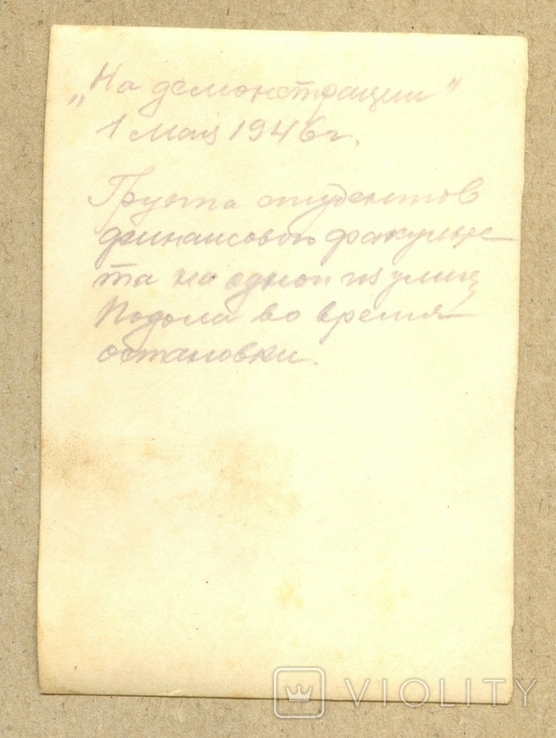 „На демонстрации"
1 мая 1946 г.
Группа студентов
финансового факульте-
та на одной из улиц
Подола во время
остановки.
VIOLITY